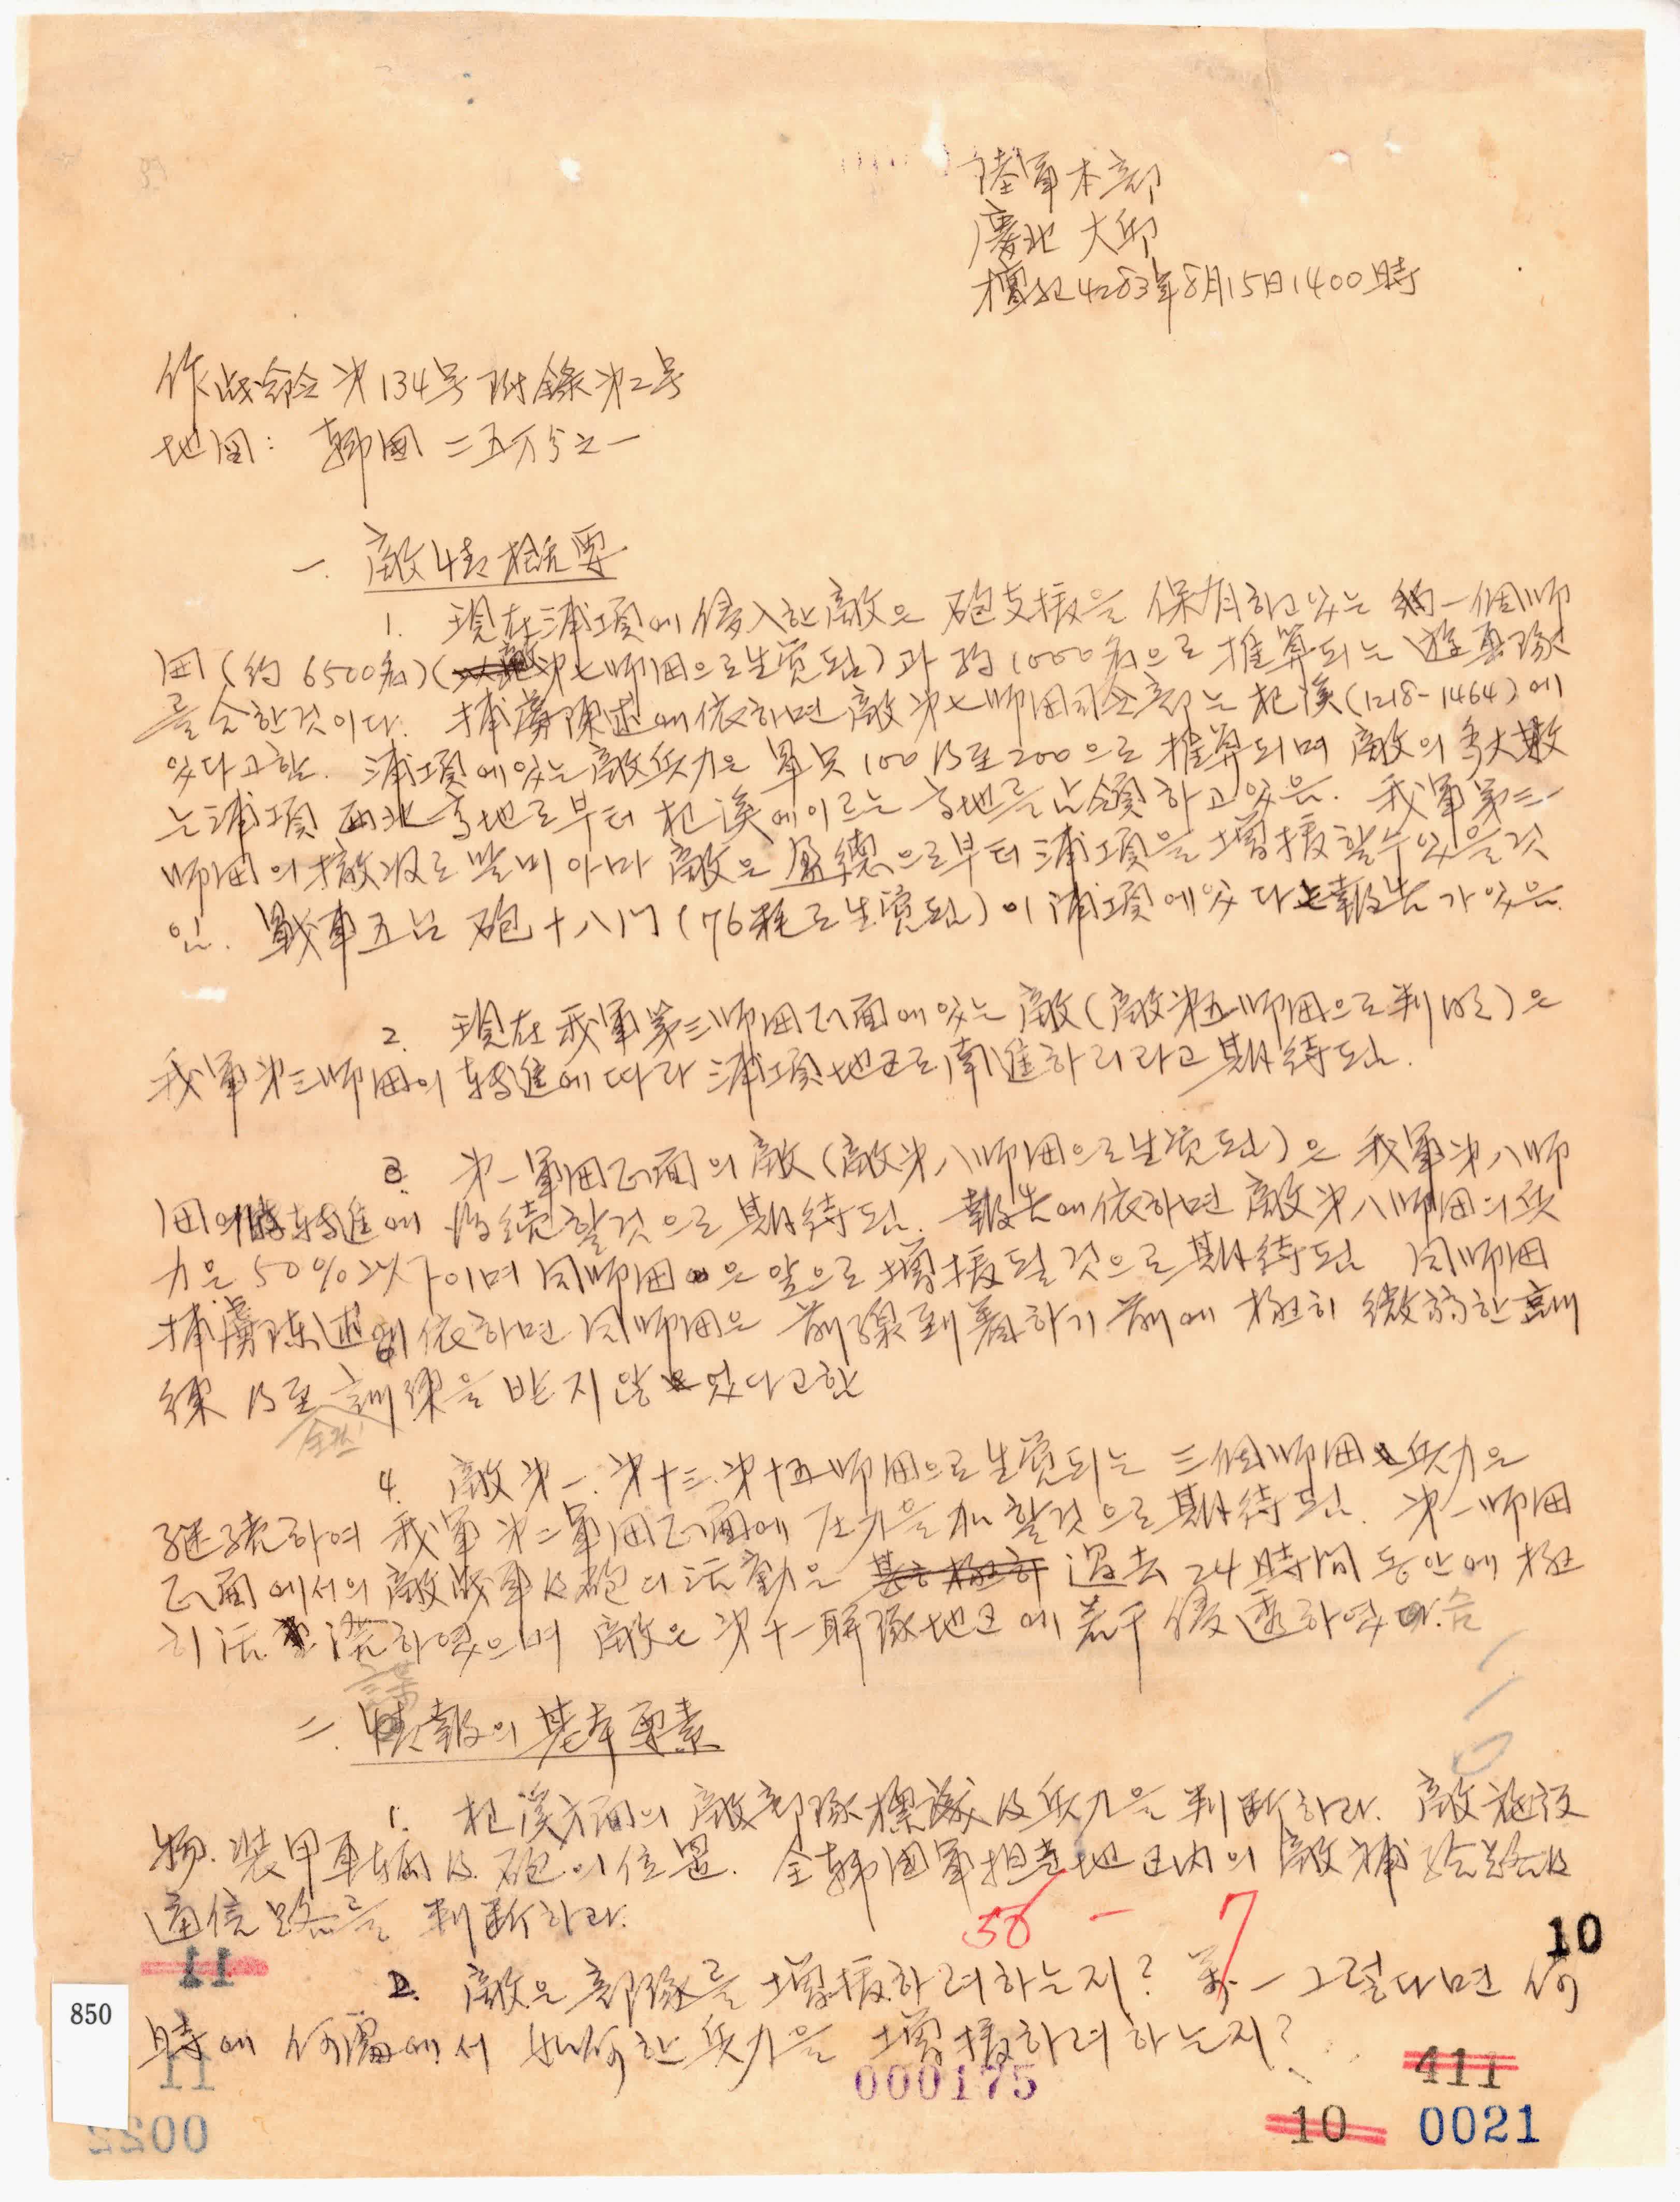 陸軍本部
慶北 大邱
檀紀4283年8月15日1400時
作战命令 第134号 附錄 第二号
地图: 韓國 二五万分之一
一. 敵情概要
1. 現在 浦項에 侵入한 敵은 砲支援을 保有하고 있는 約一個師
団(約 6500名)(敵第七師団으로 生覚됨)과 約 1000名으로 推算되는 遊撃隊
를 合한것이다. 捕虜陳述에 依하면 敵第七師団司令部는 杞溪(1218-1464)에
있다고함. 浦項에있는 敵兵力은 單只 100 乃至 200으로 推算되며 敵의 多大数
는 浦項 西北高地로부터 杞溪에이르는 高地를 占領하고있음. 我軍第三
師団의 撤収로 말미아마 敵은 盈德으로부터 浦項을 增援할수있을것
임. 戰車五台 砲十八门(76粍로 生覚됨)이 浦項에있다는 報告가있음.
2. 現在 我軍第三師団正面에있는 敵(敵第五師団으로 判明)은
我軍第三師団의 轉進에 따라 浦項地区로 南進하리라고 期待됨.
3. 第一軍団正面의 敵(敵第八師団으로 生覚됨)은 我軍第八師
団의 轉進에 后續할것으로 期待됨. 報告에依하면 敵第八師団의 兵
力은 50%以下이며 同師団은 앞으로 增援될것으로 期待됨 同師団
捕虜陳述에 依하면 同師団은 前線到着하기前에 極히 微弱한 訓
練 乃至 訓練을 받지않았다고함
全然
4. 敵第一.第十三.第十五師団으로 生覚되는 三個師団 兵力은
継續하여 我軍第二軍団正面에 压力을 加할것으로 期待됨. 第一師団
正面에서의 敵战車及砲의 活動은 過去 24時間 동안에 極
히 活潑하였으며 敵은 第十一聯隊地区에 若干 侵透하였음
二. 諜報의 基本要素
1. 杞溪方面의 敵部隊標識及兵力을 判断하라. 敵施設
物. 装甲車輛及 砲의 位置. 全韓國軍担当地区内의 敵補給路及
通信路를 判断하라.
58 - 7
10
11
2. 敵은 部隊를 增援하려하는지? 萬一 그렇다면 何
850
時에 何處에서 如何한 兵力을 增援하려하는지?
11
000175
411
10 0021